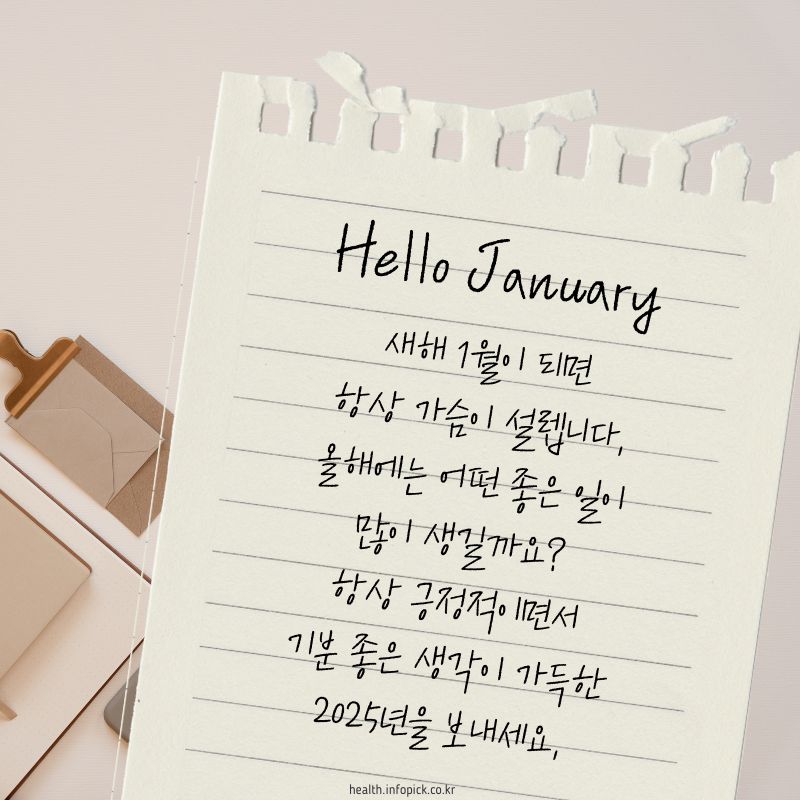 Hello January
새해 1월이 되면
항상 가슴이 설렙니다,
올해에는 어떤 좋은 일이
많이 생길까요?
항상 긍정적이면서
기분 좋은 생각이 가득한
2025년을 보내세요,
health.infopick.co.kr